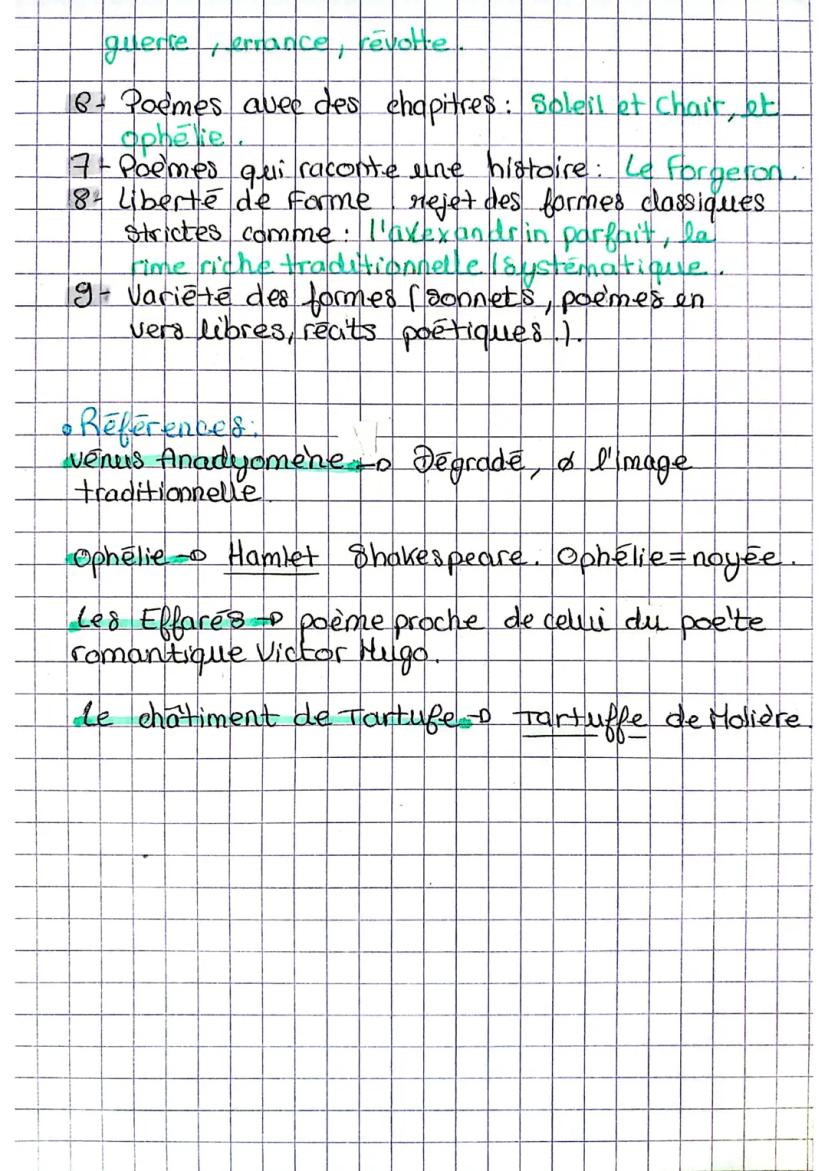 guerre, errance, révolte.
6- Poèmes avec des chapitres : Soleil et Chair, et
ophélie.
7- Poèmes qui raconte une histoire : Le Forgeron.
8- Liberté de Forme. rejet des formes classiques
strictes comme : l'alexandrin parfait, la
rime riche traditionnelle / systématique.
9- Variété des formes (sonnets, poèmes en
vers libres, récits poétiques.).
• Références:
vénus Anadyomène → Dégradé, ø l'image
traditionnelle
Ophélie → Hamlet Shakespeare. Ophélie = noyée.
Les Effarés → poème proche de celui du poète
romantique Victor Hugo.
Le châtiment de Tartufe → Tartuffe de Molière.